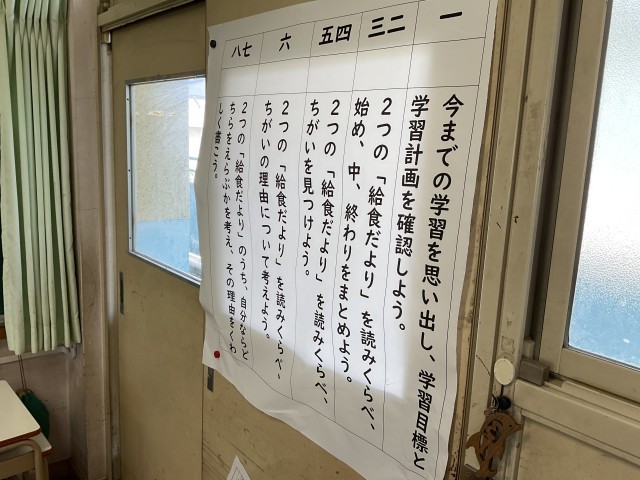 一
今までの学習を思い出し、学習目標と
学習計画を確認しよう。
二三
2つの「給食だより」を読みくらべ、
始め、中、終わりをまとめよう。
四五
2つの「給食だより」を読みくらべ、
ちがいを見つけよう。
六
2つの「給食だより」を読みくらべ、
ちがいの理由について考えよう。
七八
2つの「給食だより」のうち、自分ならど
ちらをえらぶかを考え、その理由をくわ
しく書こう。